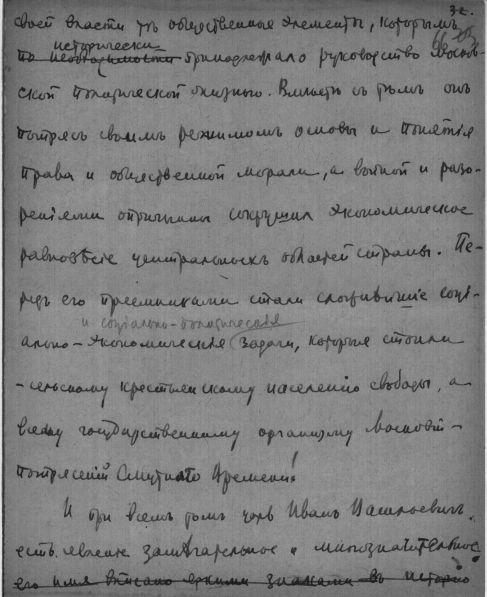 32.
своей власти тѣ общественные элементы, которымъ
исторически
по необходимости принадлежало руководство Москов-
ской политической жизнью. Вмѣстѣ съ тѣмъ онъ
потрясъ своимъ режимомъ основы и понятія
права и общественной морали, а войной и разо-
реніями опричнины сокрушил экономическое
равновѣсіе центральныхъ областей страны. Пе-
редъ его преемниками стали сложнѣйшіе соці-
и соціально-политическія
ально-экономическія задачи, которые стоили
- сельскому крестьянскому населенію свободы, а
всему государственному организму Московіи -
потрясеній Смутнаго Времени!
И при всемъ томъ царь Иванъ Васильевичъ
есть явленіе замѣчательное и многозначительное.
его имя вписано яркими знаками въ исторію